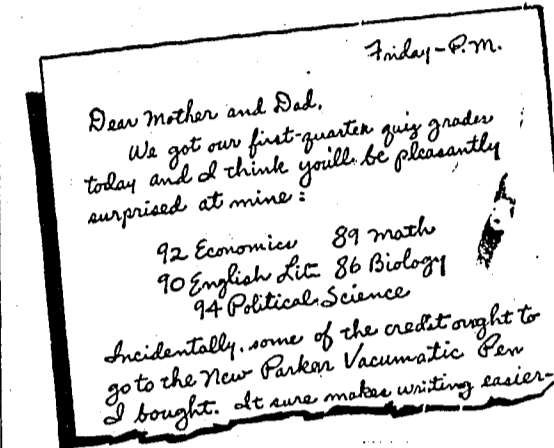 Friday-P.M.
Dear Mother and Dad,
We got our first-quarter quiz grades
today and I think you'll be pleasantly
surprised at mine:
92 Economics 89 Math
90 English Lit 86 Biology
94 Political Science
Incidentally, some of the credit ought to
go to the New Parker Vacumatic Pen
I bought. It sure makes writing easier-